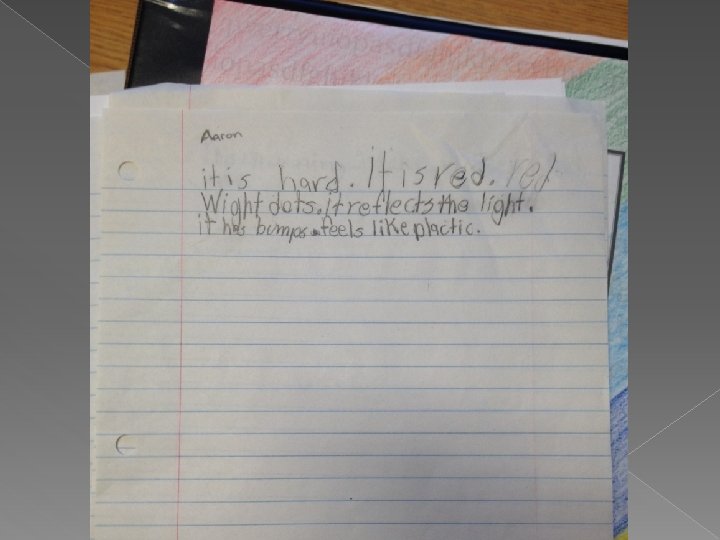 Aaron
it is hard. It is red. red
Wight dots. it reflects the light.
it has bumps. feels like plactic.